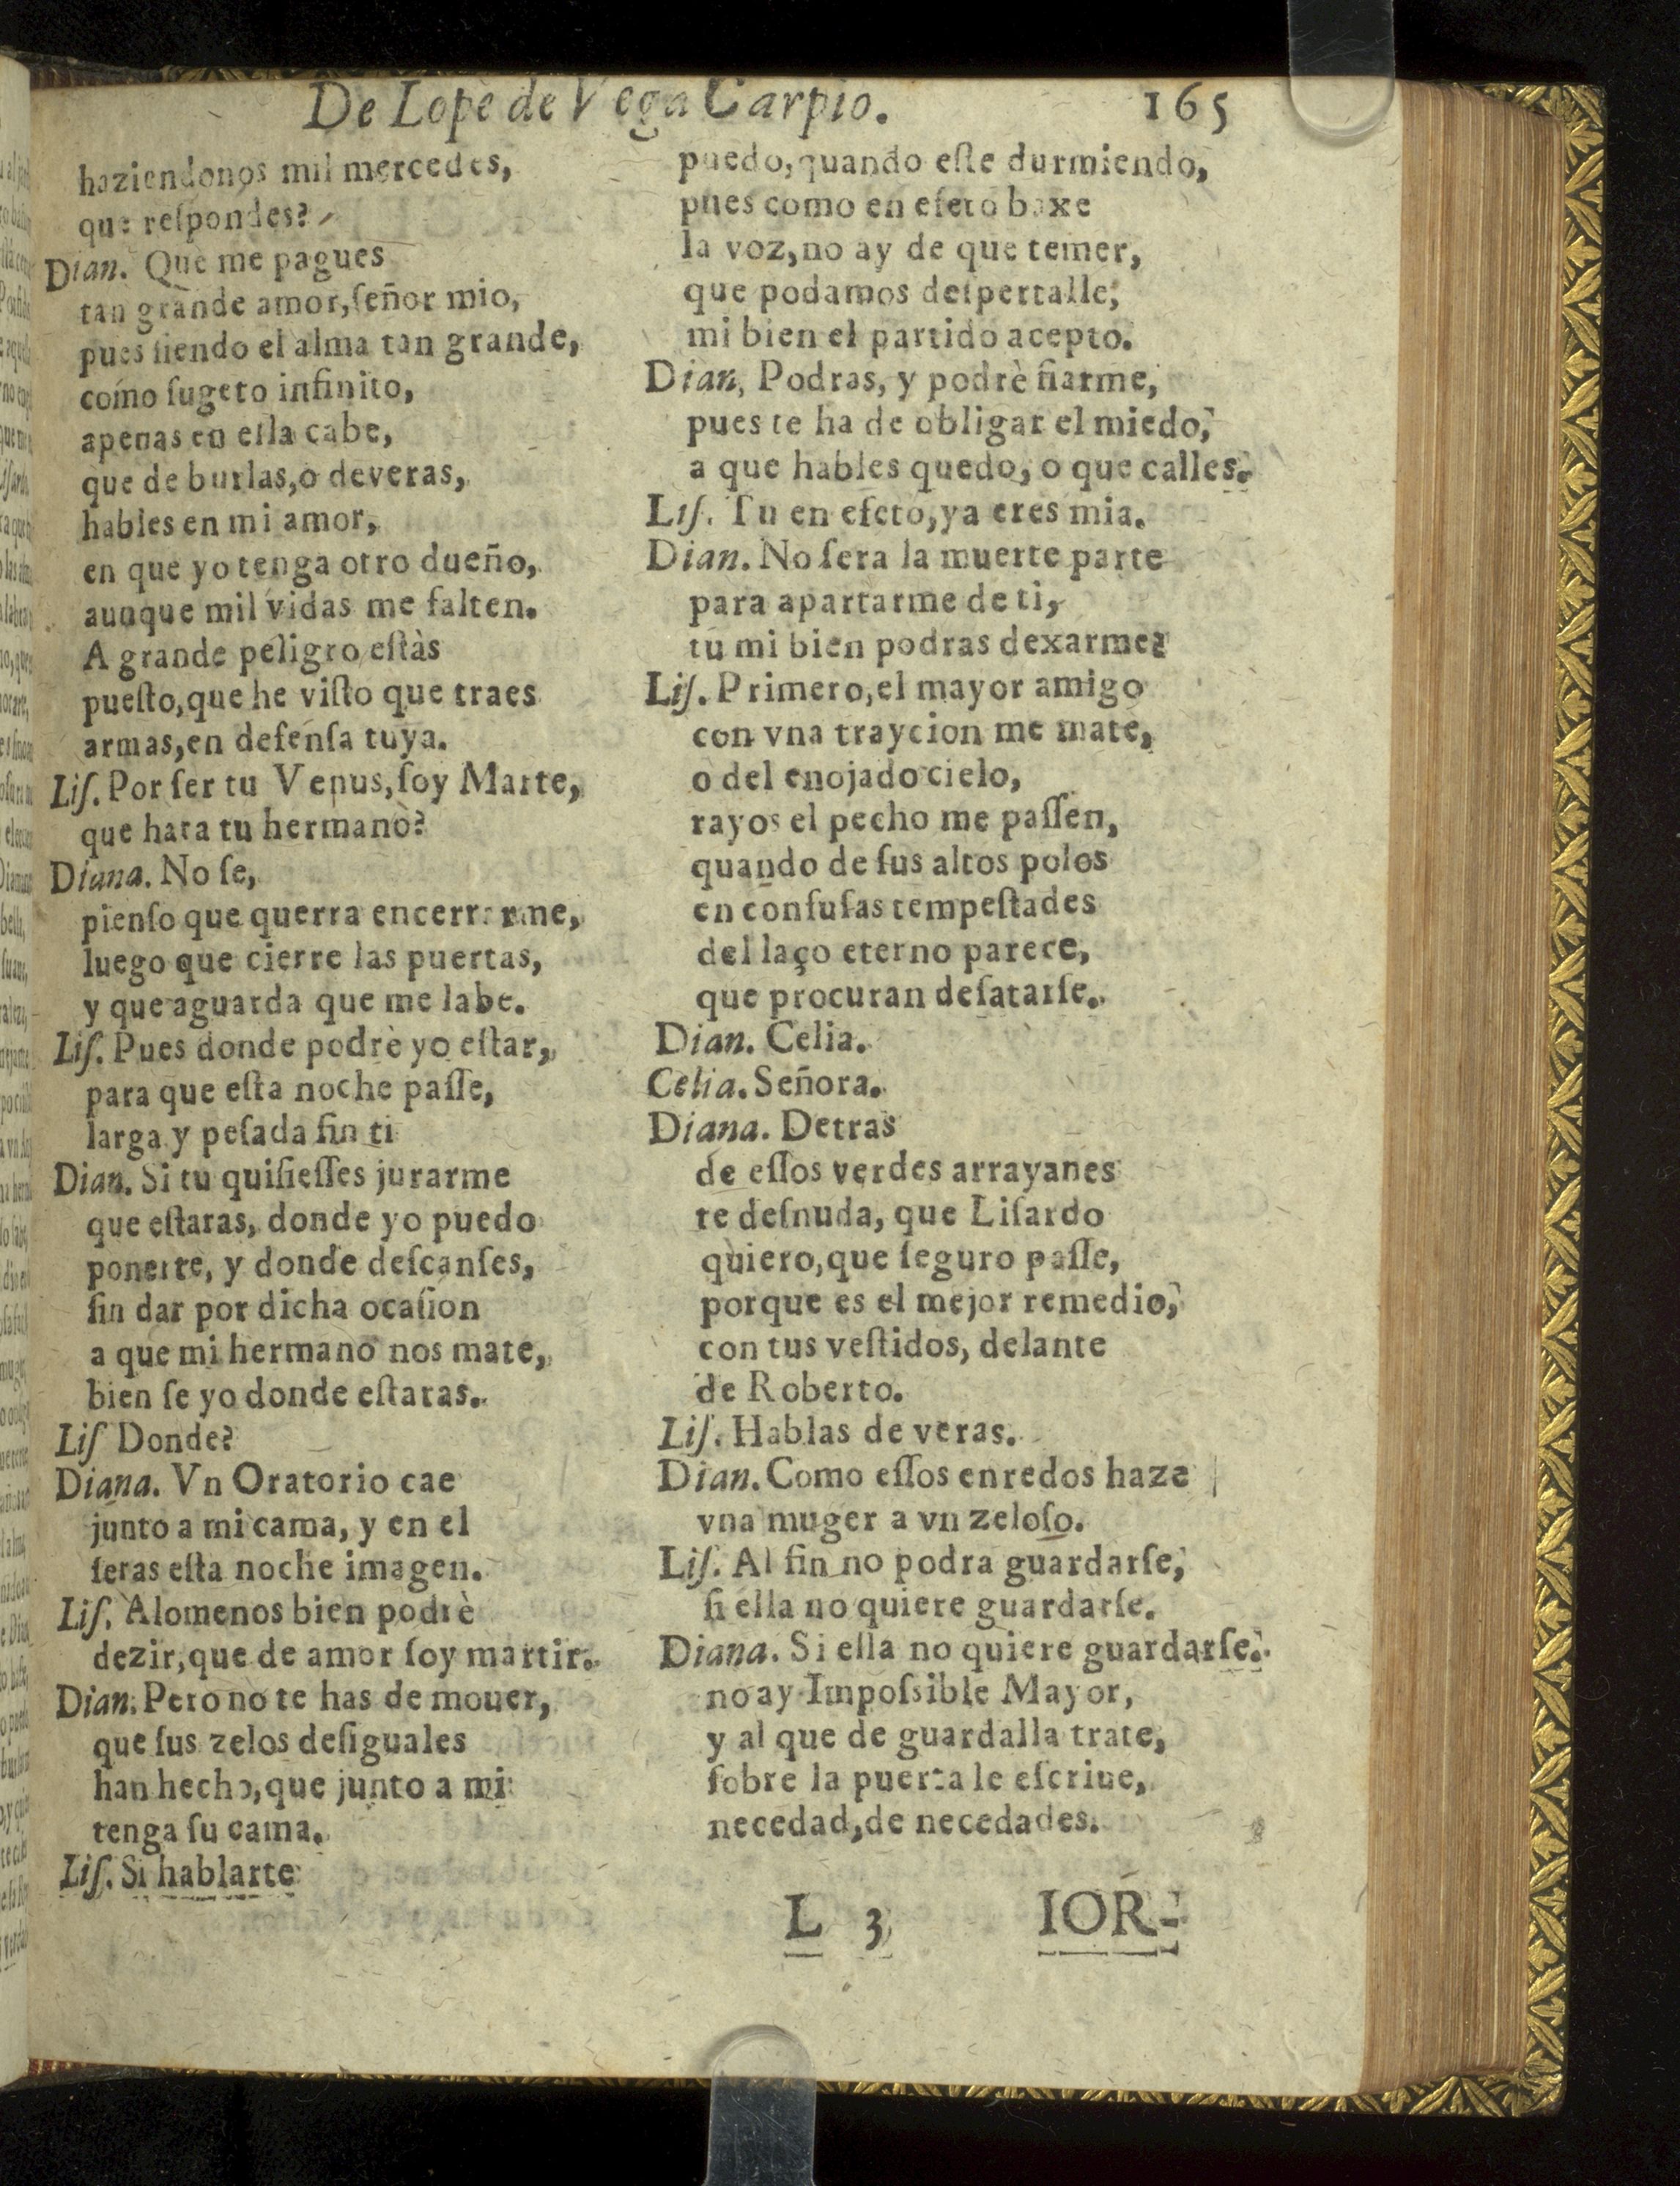 De Lope de Vega Carpio. 165
haziendonos mil mercedes,
que reſpondes?
Dian. Que me pagues
tan grande amor, ſeñor mio,
pues ſiendo el alma tan grande,
como ſugeto infinito,
apenas en ella cabe,
que de burlas, o deveras,
hables en mi amor,
en que yo tenga otro dueño,
aunque mil vidas me falten.
A grande peligro eſtàs
pueſto, que he viſto que traes
armas, en defenſa tuya.
Liſ. Por ſer tu Venus, ſoy Marte,
que hara tu hermano?
Diana. No ſe,
pienſo que querra encerrarme,
luego que cierre las puertas,
y que aguarda que me labe.
Liſ. Pues donde podrè yo eſtar,
para que eſta noche paſſe,
larga y peſada ſin ti
Dian. Si tu quiſieſſes jurarme
que eſtaras, donde yo puedo
ponerte, y donde deſcanſes,
ſin dar por dicha ocaſion
a que mi hermano nos mate,
bien ſe yo donde eſtaras.
Liſ Donde?
Diana. Vn Oratorio cae
junto a mi cama, y en el
ſeras eſta noche imagen.
Liſ. Alomenos bien podrè
dezir, que de amor ſoy martir.
Dian. Pero no te has de mouer,
que ſus zelos deſiguales
han hecho, que junto a mi
tenga ſu cama.
Liſ. Si hablarte
puedo, quando eſte durmiendo,
pues como en efeto baxe
la voz, no ay de que temer,
que podamos deſpertalle,
mi bien el partido acepto.
Dian, Podras, y podrè fiarme,
pues te ha de obligar el miedo,
a que hables quedo, o que calles.
Liſ. Tu en efeto, ya eres mia.
Dian. No ſera la muerte parte
para apartarme de ti,
tu mi bien podras dexarme?
Liſ. Primero, el mayor amigo
con vna traycion me mate,
o del enojado cielo,
rayos el pecho me paſſen,
quando de ſus altos polos
en confuſas tempeſtades
del laço eterno parece,
que procuran deſatarſe.
Dian. Celia.
Celia. Señora.
Diana. Detras
de eſſos verdes arrayanes
te deſnuda, que Liſardo
quiero, que ſeguro paſſe,
porque es el mejor remedio,
con tus veſtidos, delante
de Roberto.
Liſ. Hablas de veras.
Dian. Como eſſos enredos haze
vna muger a vn zeloſo.
Liſ. Al fin no podra guardarſe,
ſi ella no quiere guardarſe.
Diana. Si ella no quiere guardarſe.
no ay Impoſsible Mayor,
y al que de guardalla trate,
ſobre la puerta le eſcriue,
necedad, de necedades.
L 3 IOR-